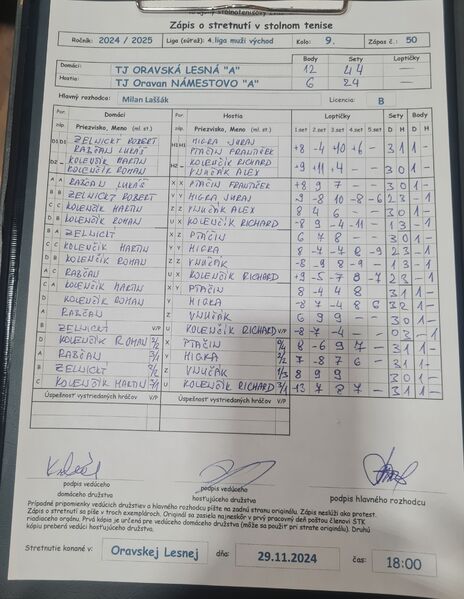 Zápis o stretnutí v stolnom tenise
Ročník: 2024 / 2025 Liga (súťaž): 4. liga muži východ Kolo: 9. Zápas č.: 50
Body Sety Loptičky
Domáci: TJ ORAVSKÁ LESNÁ "A" 12 44 —
Hostia: TJ Oravan NÁMESTOVO "A" 6 24 —
Hlavný rozhodca: Milan Laššák Licencia: B
Por. Domáci Por. Hostia Loptičky Sety Body
záp. Priezvisko, Meno (ml. st.) záp. Priezvisko, Meno (ml. st.) 1.set 2.set 3.set 4.set 5.set D H D H
D1 ZELNICKÝ ROBERT H1 HIGRA JURAJ +8 -4 +10 +6 - 3 1 1 -
RABČAN LUKÁŠ PTAČIN FRANTIŠEK
D2 KOLENČÍK MARTIN H2 KOLENČÍK RICHARD +9 +11 +4 - - 3 0 1 -
KOLENČÍK ROMAN VNUČÁK ALEX
A RABČAN LUKÁŠ X PTAČIN FRANTIŠEK 8 9 7 - - 3 0 1 -
B ZELNICKÝ ROBERT Y HIGRA JURAJ -9 -8 10 -8 -6
C KOLENČÍK MARTIN Z VNUČÁK ALEX 8 4 6 - - 3 0 1 -
D KOLENČÍK ROMAN U KOLENČÍK RICHARD -8 9 -4 -11 - 1 3 - 1
B ZELNICKÝ X PTAČIN 6 7 8 - - 3 0 1 -
C KOLENČÍK MARTIN Y HIGRA 8 -7 -7 8 -9 2 3 - 1
D KOLENČÍK ROMAN Z VNUČÁK -8 -9 8 -9 - 1 3 - 1
A RABČAN U KOLENČÍK RICHARD +9 -5 -7 8 -7 2 3 - 1
C KOLENČÍK MARTIN X PTAČIN 8 -4 4 8 - 3 1 1 -
D KOLENČÍK ROMAN Y HIGRA
A RABČAN Z VNUČÁK 6 9 9 - - 3 0 1 -
B ZELNICKÝ V/P U KOLENČÍK RICHARD V/P -8 -7 -4 - - 0 3 - 1
D KOLENČÍK ROMAN X PTAČIN 8 -6 9 7 - 3 1 1 -
A RABČAN Y HIGRA 7 -8 7 6 - 3 1 1 -
B ZELNICKÝ Z VNUČÁK 8 9 9 - - 3 0 1 -
C KOLENČÍK MARTIN U KOLENČÍK RICHARD 13 7
Úspešnosť vystriedaných hráčov V/P Úspešnosť vystriedaných hráčov V/P
podpis vedúceho podpis vedúceho podpis hlavného rozhodcu
domáceho družstva hosťujúceho družstva
Prípadné pripomienky vedúcich družstiev a hlavného rozhodcu píšte na zadnú stranu originálu. Zápis neslúži ako protest.
Zápis o stretnutí sa píše v troch exemplároch. Originál sa zasiela najneskôr v prvý pracovný deň poštou členovi ŠTK
riadiaceho orgánu. Prvá kópia je určená pre vedúceho domáceho družstva (môže sa použiť pri strate originálu). Druhú
kópiu preberá vedúci hosťujúceho družstva.
Stretnutie konané v: Oravskej Lesnej dňa: 29.11.2024 čas: 18:00